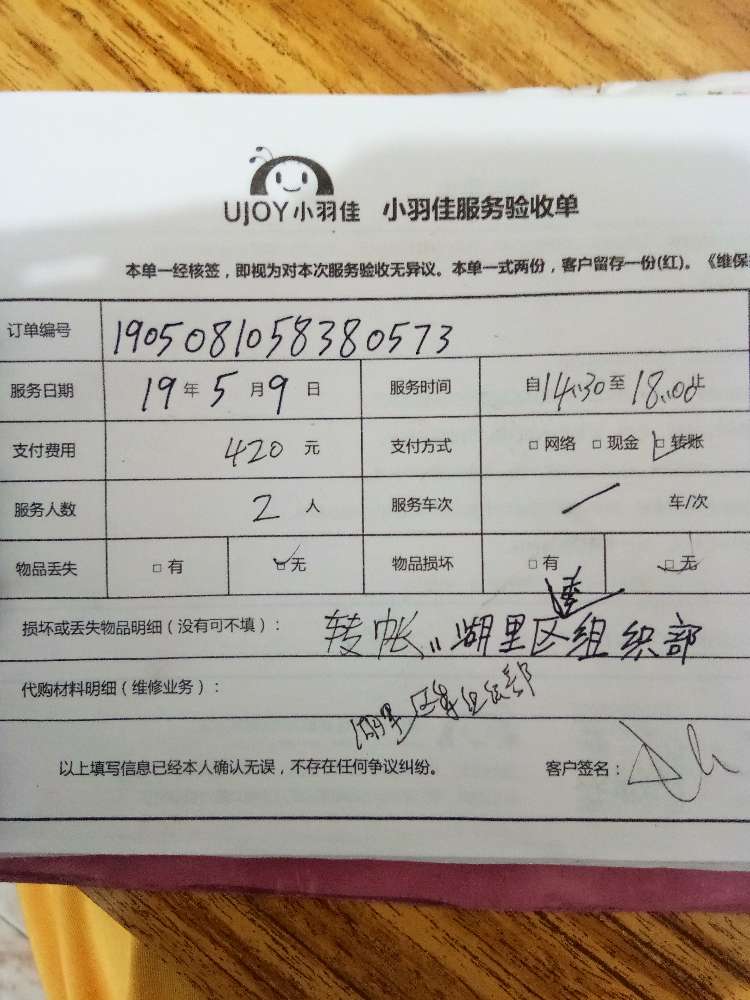 UJOY小羽佳 小羽佳服务验收单
本单一经核签，即视为对本次服务验收无异议。本单一式两份，客户留存一份(红)。《维保
订单编号 1905081058380573
服务日期 19年5月9日 服务时间 自14:30至18:00止
支付费用 420元 支付方式 □网络 □现金 □转账
服务人数 2人 服务车次 / 车/次
物品丢失 □有 □无 物品损坏 □有 □无
委
损坏或丢失物品明细（没有可不填）： 转帐,, 湖里区组织部
代购材料明细（维修业务）：
湖里区委组织部
以上填写信息已经本人确认无误，不存在任何争议纠纷。 客户签名：